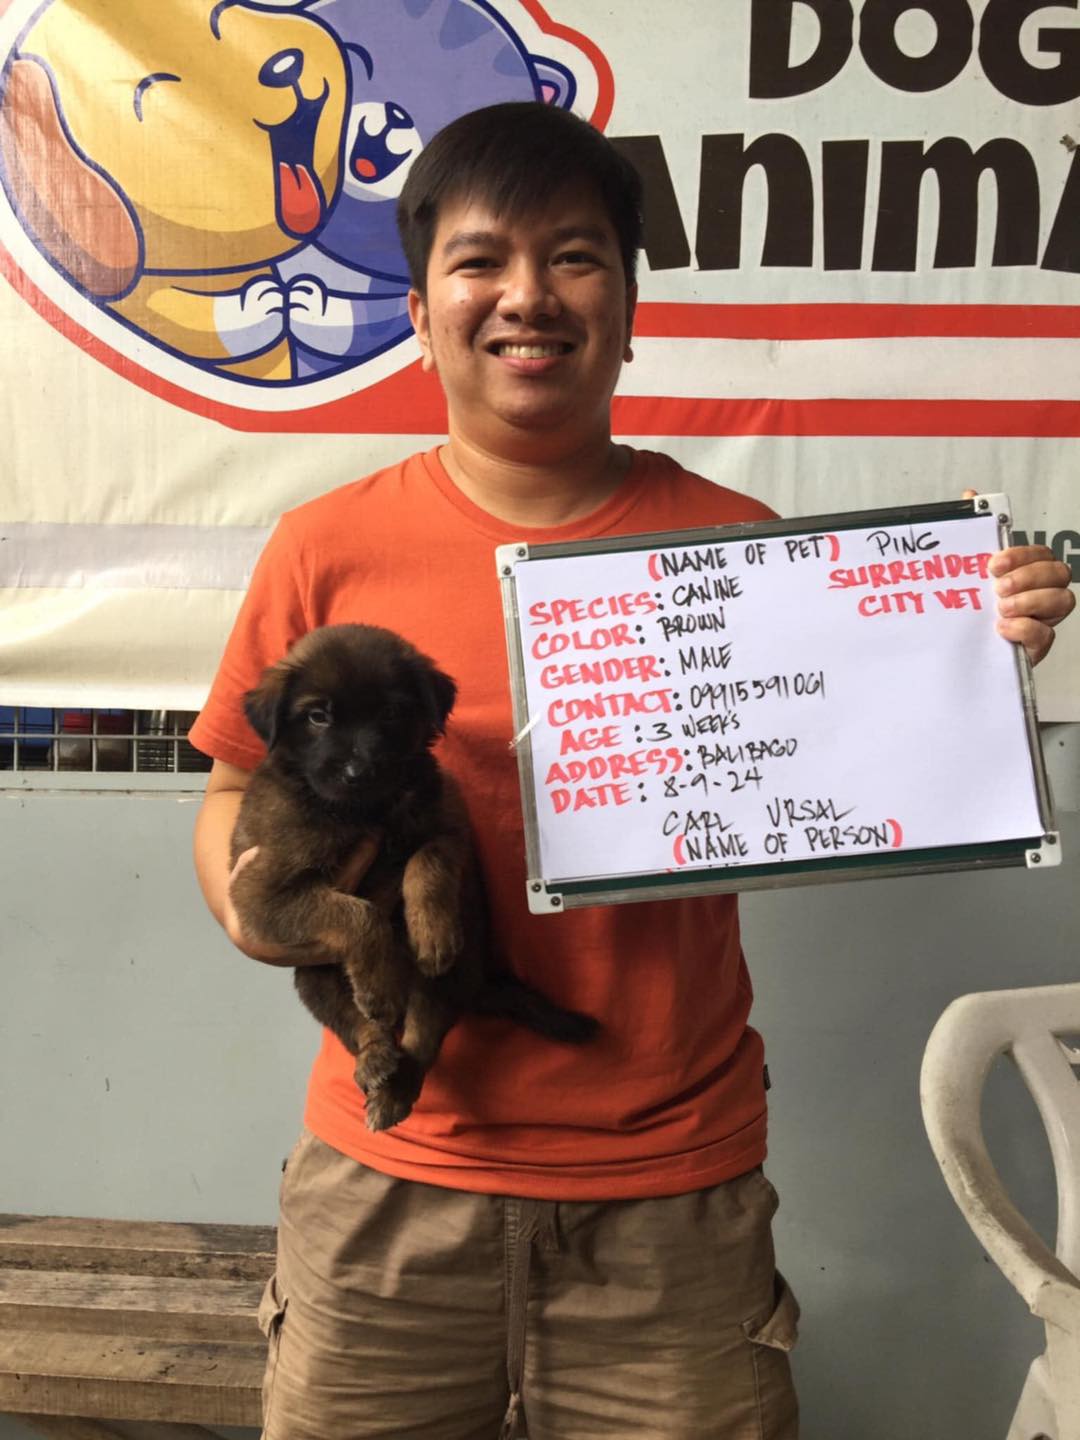 DOG
ANIMA
NG
(NAME OF PET) PING
SURRENDER
CITY VET
SPECIES: CANINE
COLOR: BROWN
GENDER: MALE
CONTACT: 09915591061
AGE : 3 WEEK'S
ADDRESS: BALIBAGO
DATE : 8-9-24
CARL URSAL
(NAME OF PERSON)